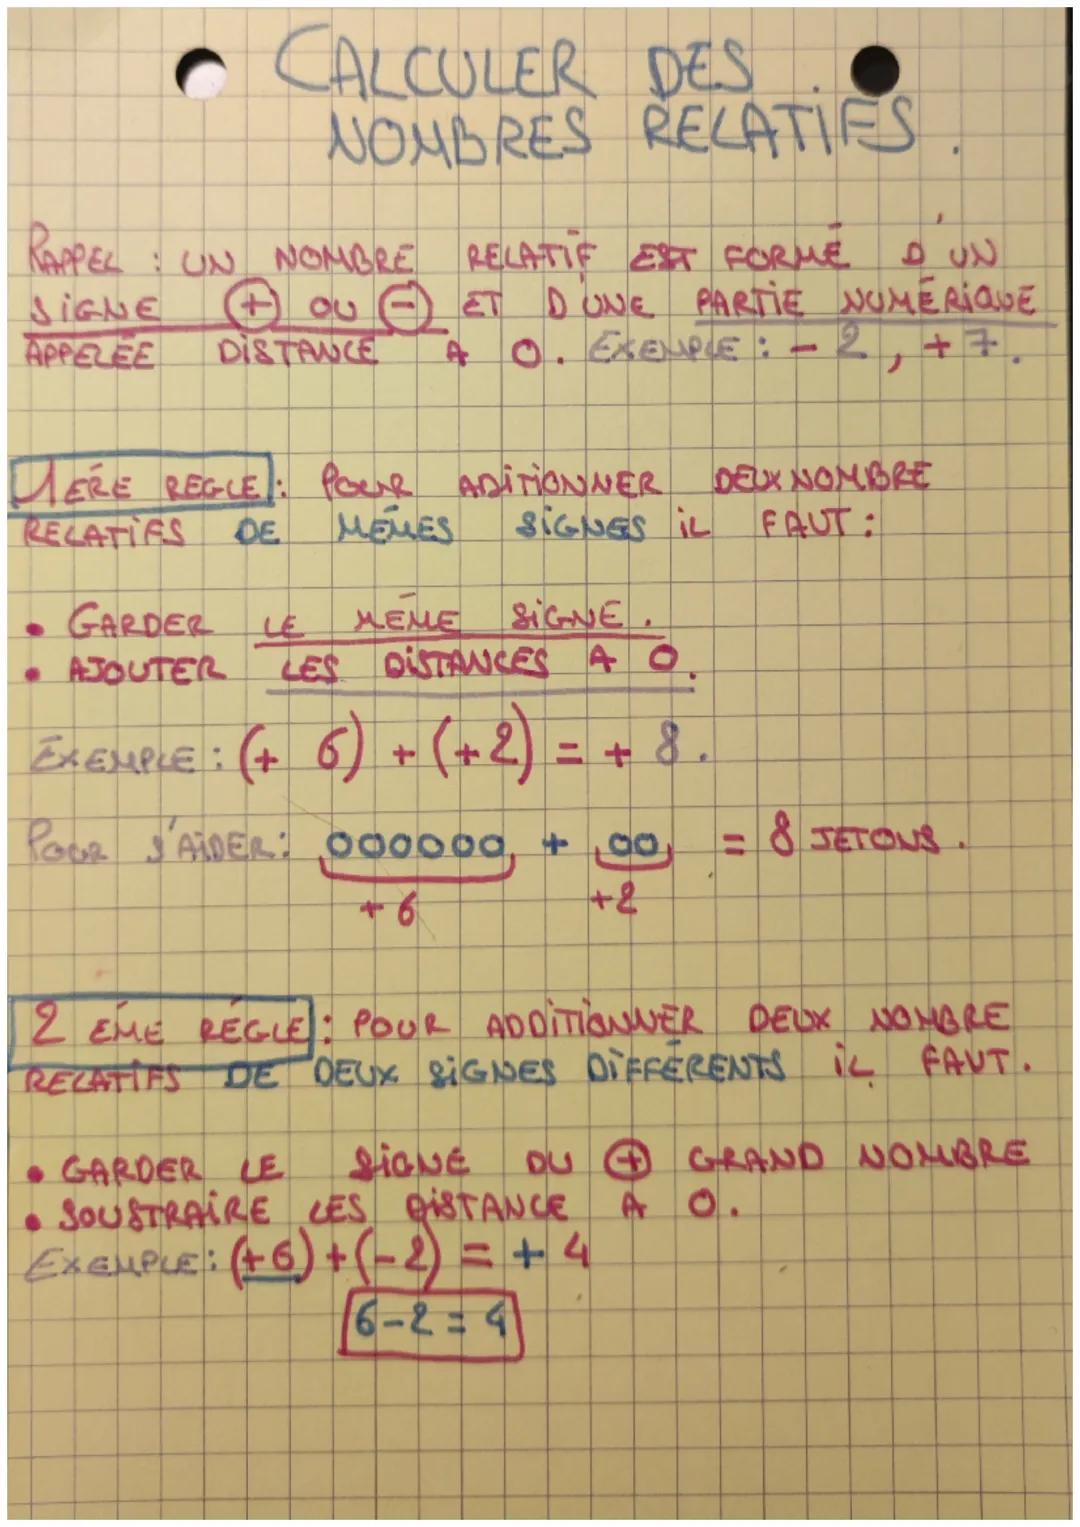 CALCULER DES
NOMBRES RELATIFS.
RAPPEL : UN NOMBRE RELATIF EST FORMÉ D'UN
SIGNE (+) OU (-) ET D'UNE PARTIE NUMÉRIQUE
APPELÉE DISTANCE A 0. EXEMPLE : - 2, + 7.
1 ÈRE REGLE : POUR ADITIONNER DEUX NOMBRE
RELATIFS DE MÊMES SIGNES IL FAUT :
• GARDER LE MÊME SIGNE.
• AJOUTER LES DISTANCES A 0.
EXEMPLE : (+ 6) + (+2) = + 8.
POUR S'AIDER : 000000 + 00 = 8 JETONS.
+ 6 +2
2 EME RÉGLE : POUR ADDITIONNER DEUX NOMBRE
RELATIFS DE DEUX SIGNES DIFFÉRENTS IL FAUT.
• GARDER LE SIGNE DU (+) GRAND NOMBRE
• SOUSTRAIRE LES DISTANCE A 0.
EXEMPLE : (+6) + (-2) = + 4
6-2 = 4